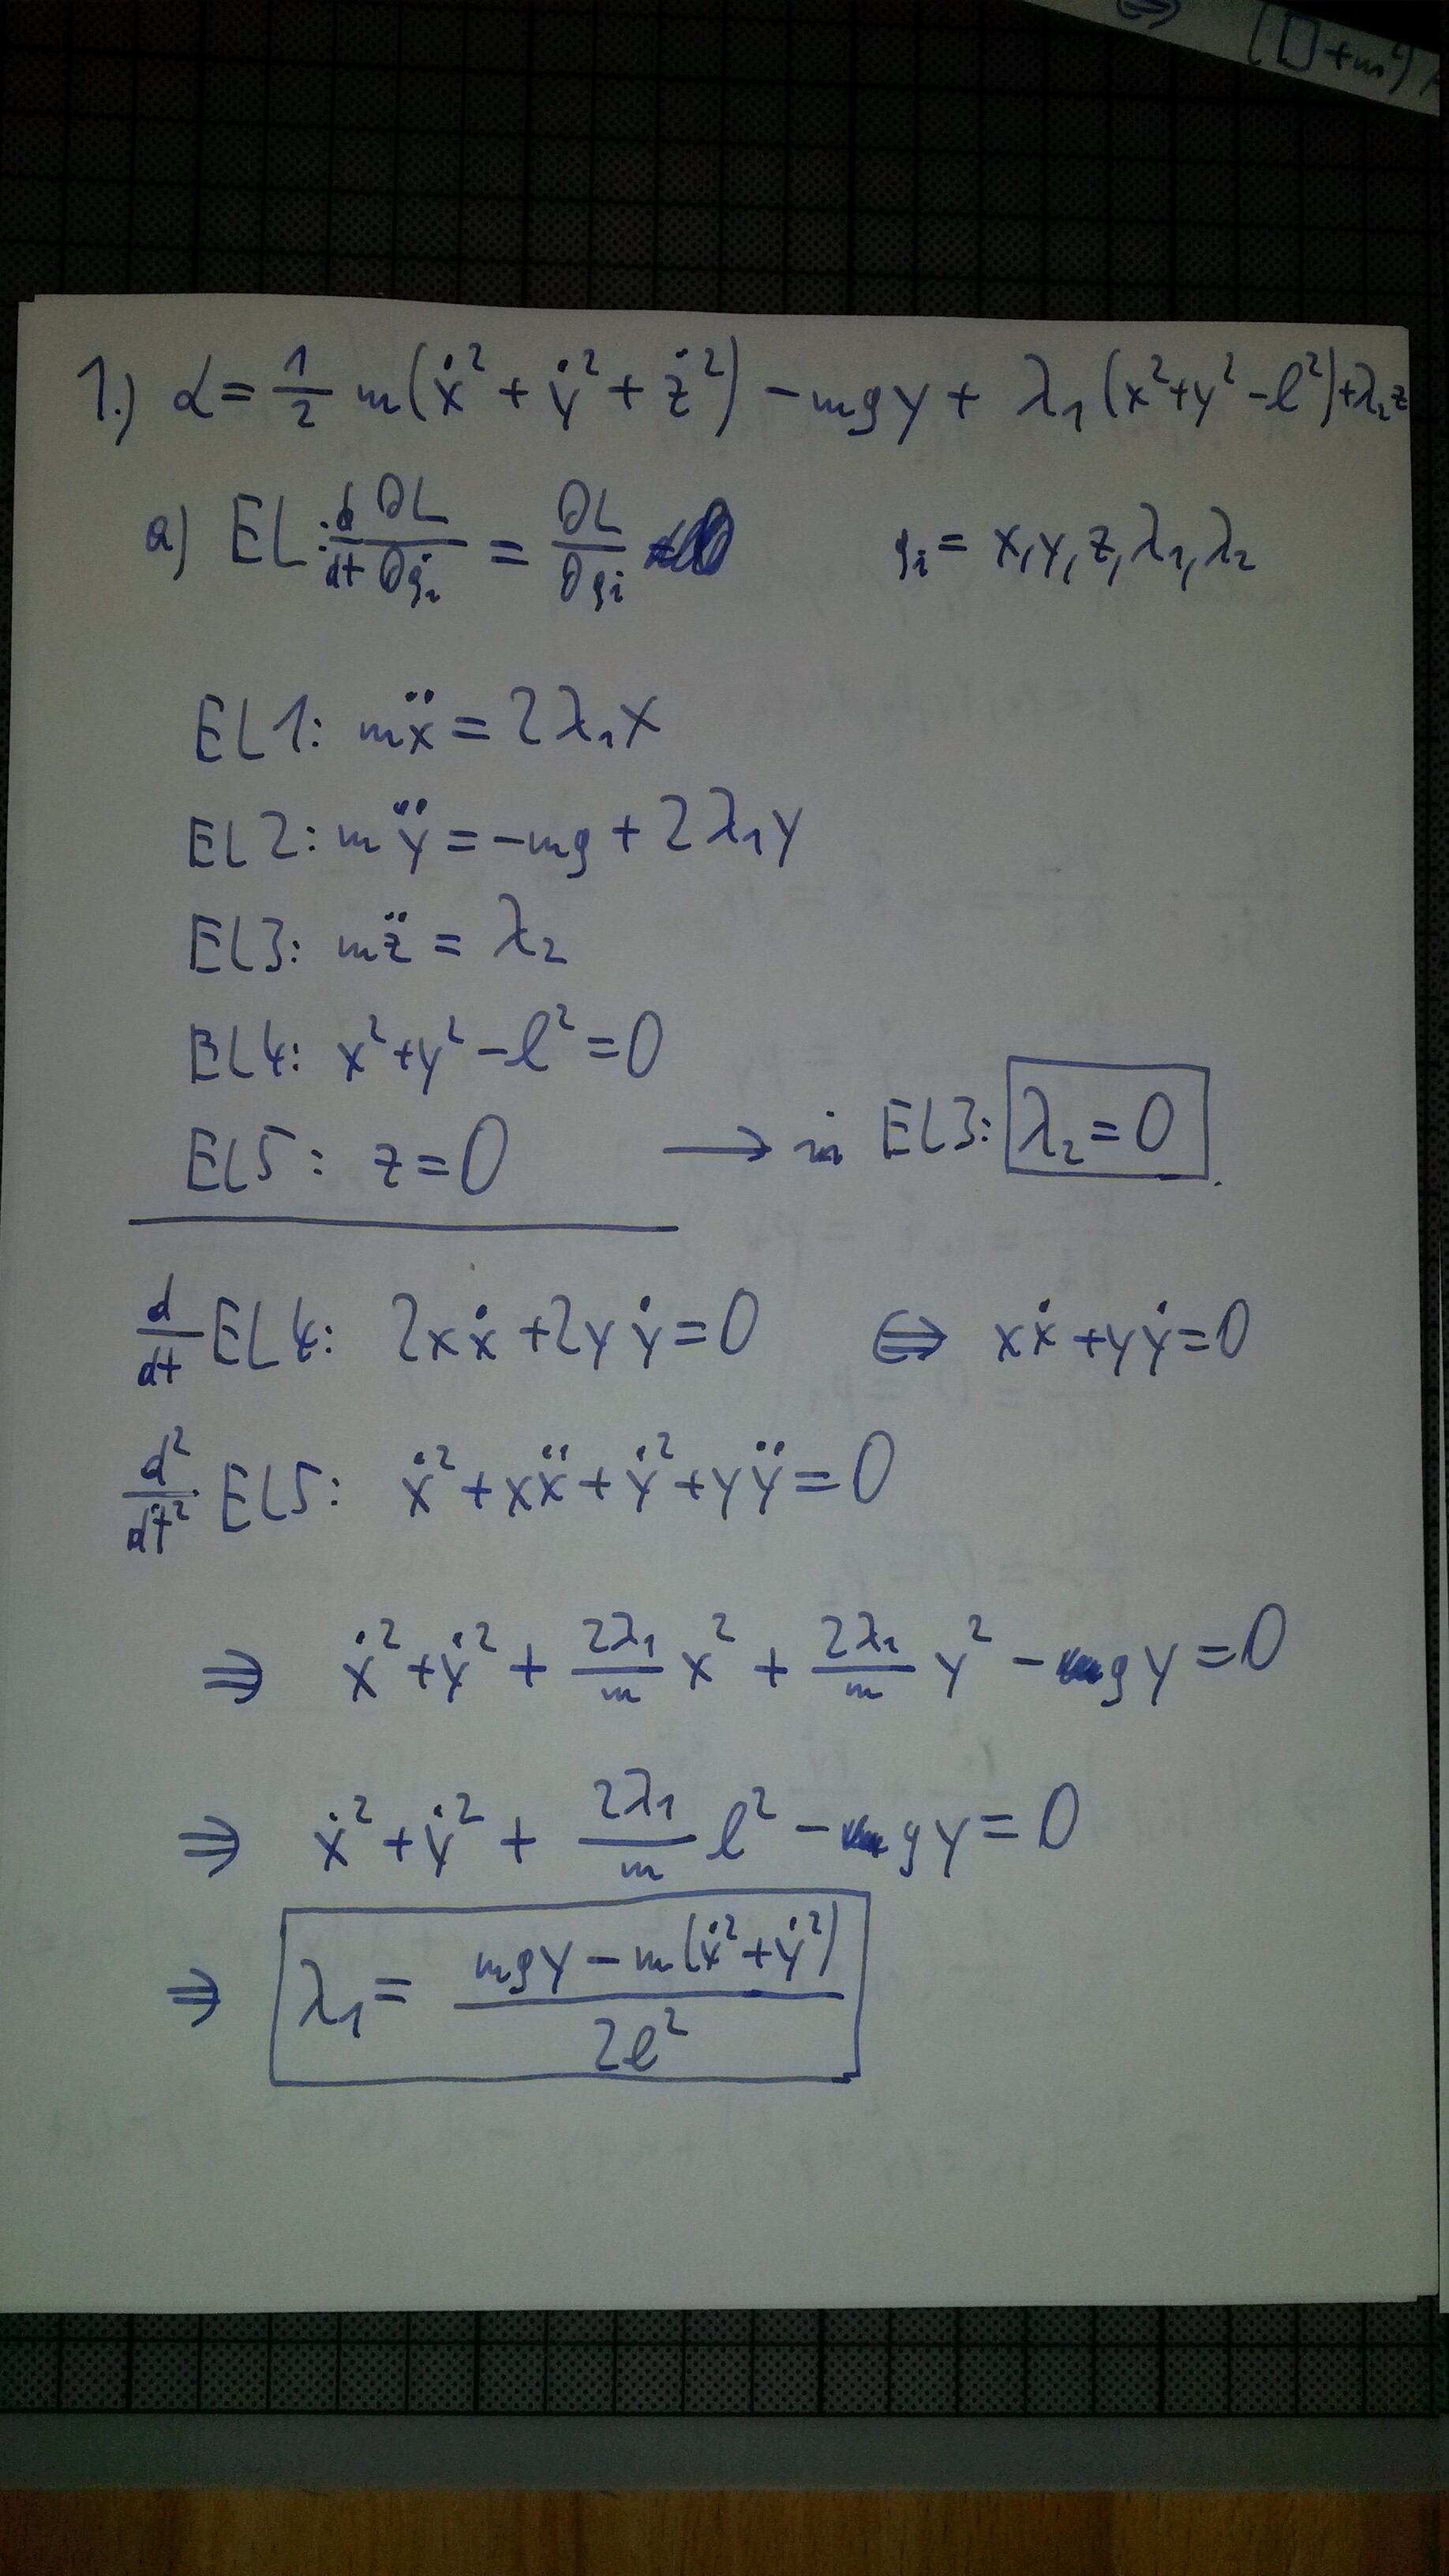 ⇔ (□+m²)
1.) L = 1/2 m(ẋ² + ẏ² + ż²) - mgy + λ₁(x²+y²-l²)+λ₂z
a) EL: d/dt ∂L/∂q̇ᵢ = ∂L/∂qᵢ qᵢ = x,y,z,λ₁,λ₂
EL1: mẍ = 2λ₁x
EL2: mÿ = -mg + 2λ₁y
EL3: mz̈ = λ₂
EL4: x²+y²-l²=0
EL5: z=0 → in EL3: λ₂=0
d/dt EL4: 2xẋ+2yẏ=0 ⇔ xẋ+yẏ=0
d²/dt² EL5: ẋ²+xẍ+ẏ²+yÿ=0
⇒ ẋ²+ẏ²+ 2λ₁/m x² + 2λ₁/m y² - gy=0
⇒ ẋ²+ẏ²+ 2λ₁/m l² - gy=0
⇒ λ₁= (mgy-m(ẋ²+ẏ²))/2l²